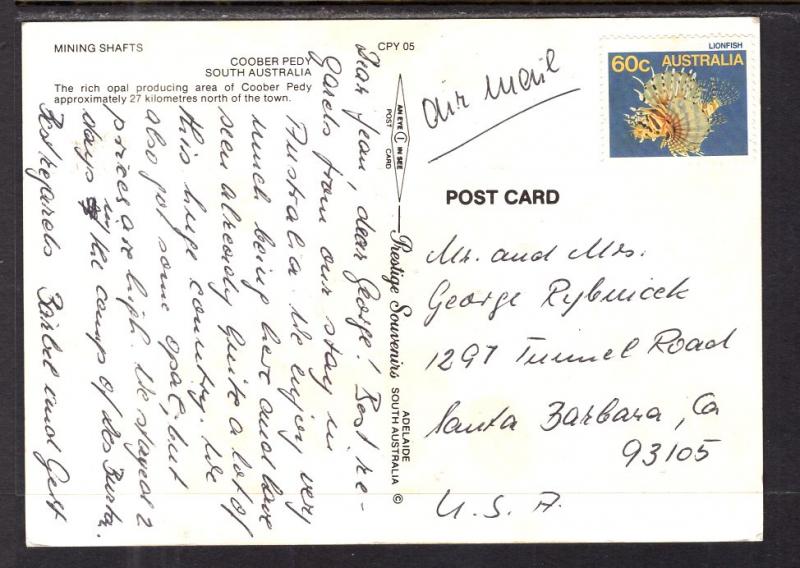 MINING SHAFTS
COOBER PEDY
SOUTH AUSTRALIA
The rich opal producing area of Coober Pedy
approximately 27 kilometres north of the town.
CPY 05
AN EYE IN SEE
POST CARD
Prestige Souvenirs
ADELAIDE
SOUTH AUSTRALIA ©
Dear Jean, dear George! Best re-
gards from our stay in
Australia. We enjoy very
much being here and have
seen already quite a lot of
this huge country. We
also got some opal, but
prices are high. We stayed 2
days in the camps of
Best regards Bärbel und Gert
air mail
60c AUSTRALIA
LIONFISH
POST CARD
Mr. and Mrs.
George Rybnicek
1297 Tunnel Road
Santa Barbara, Ca
93105
U.S.A.